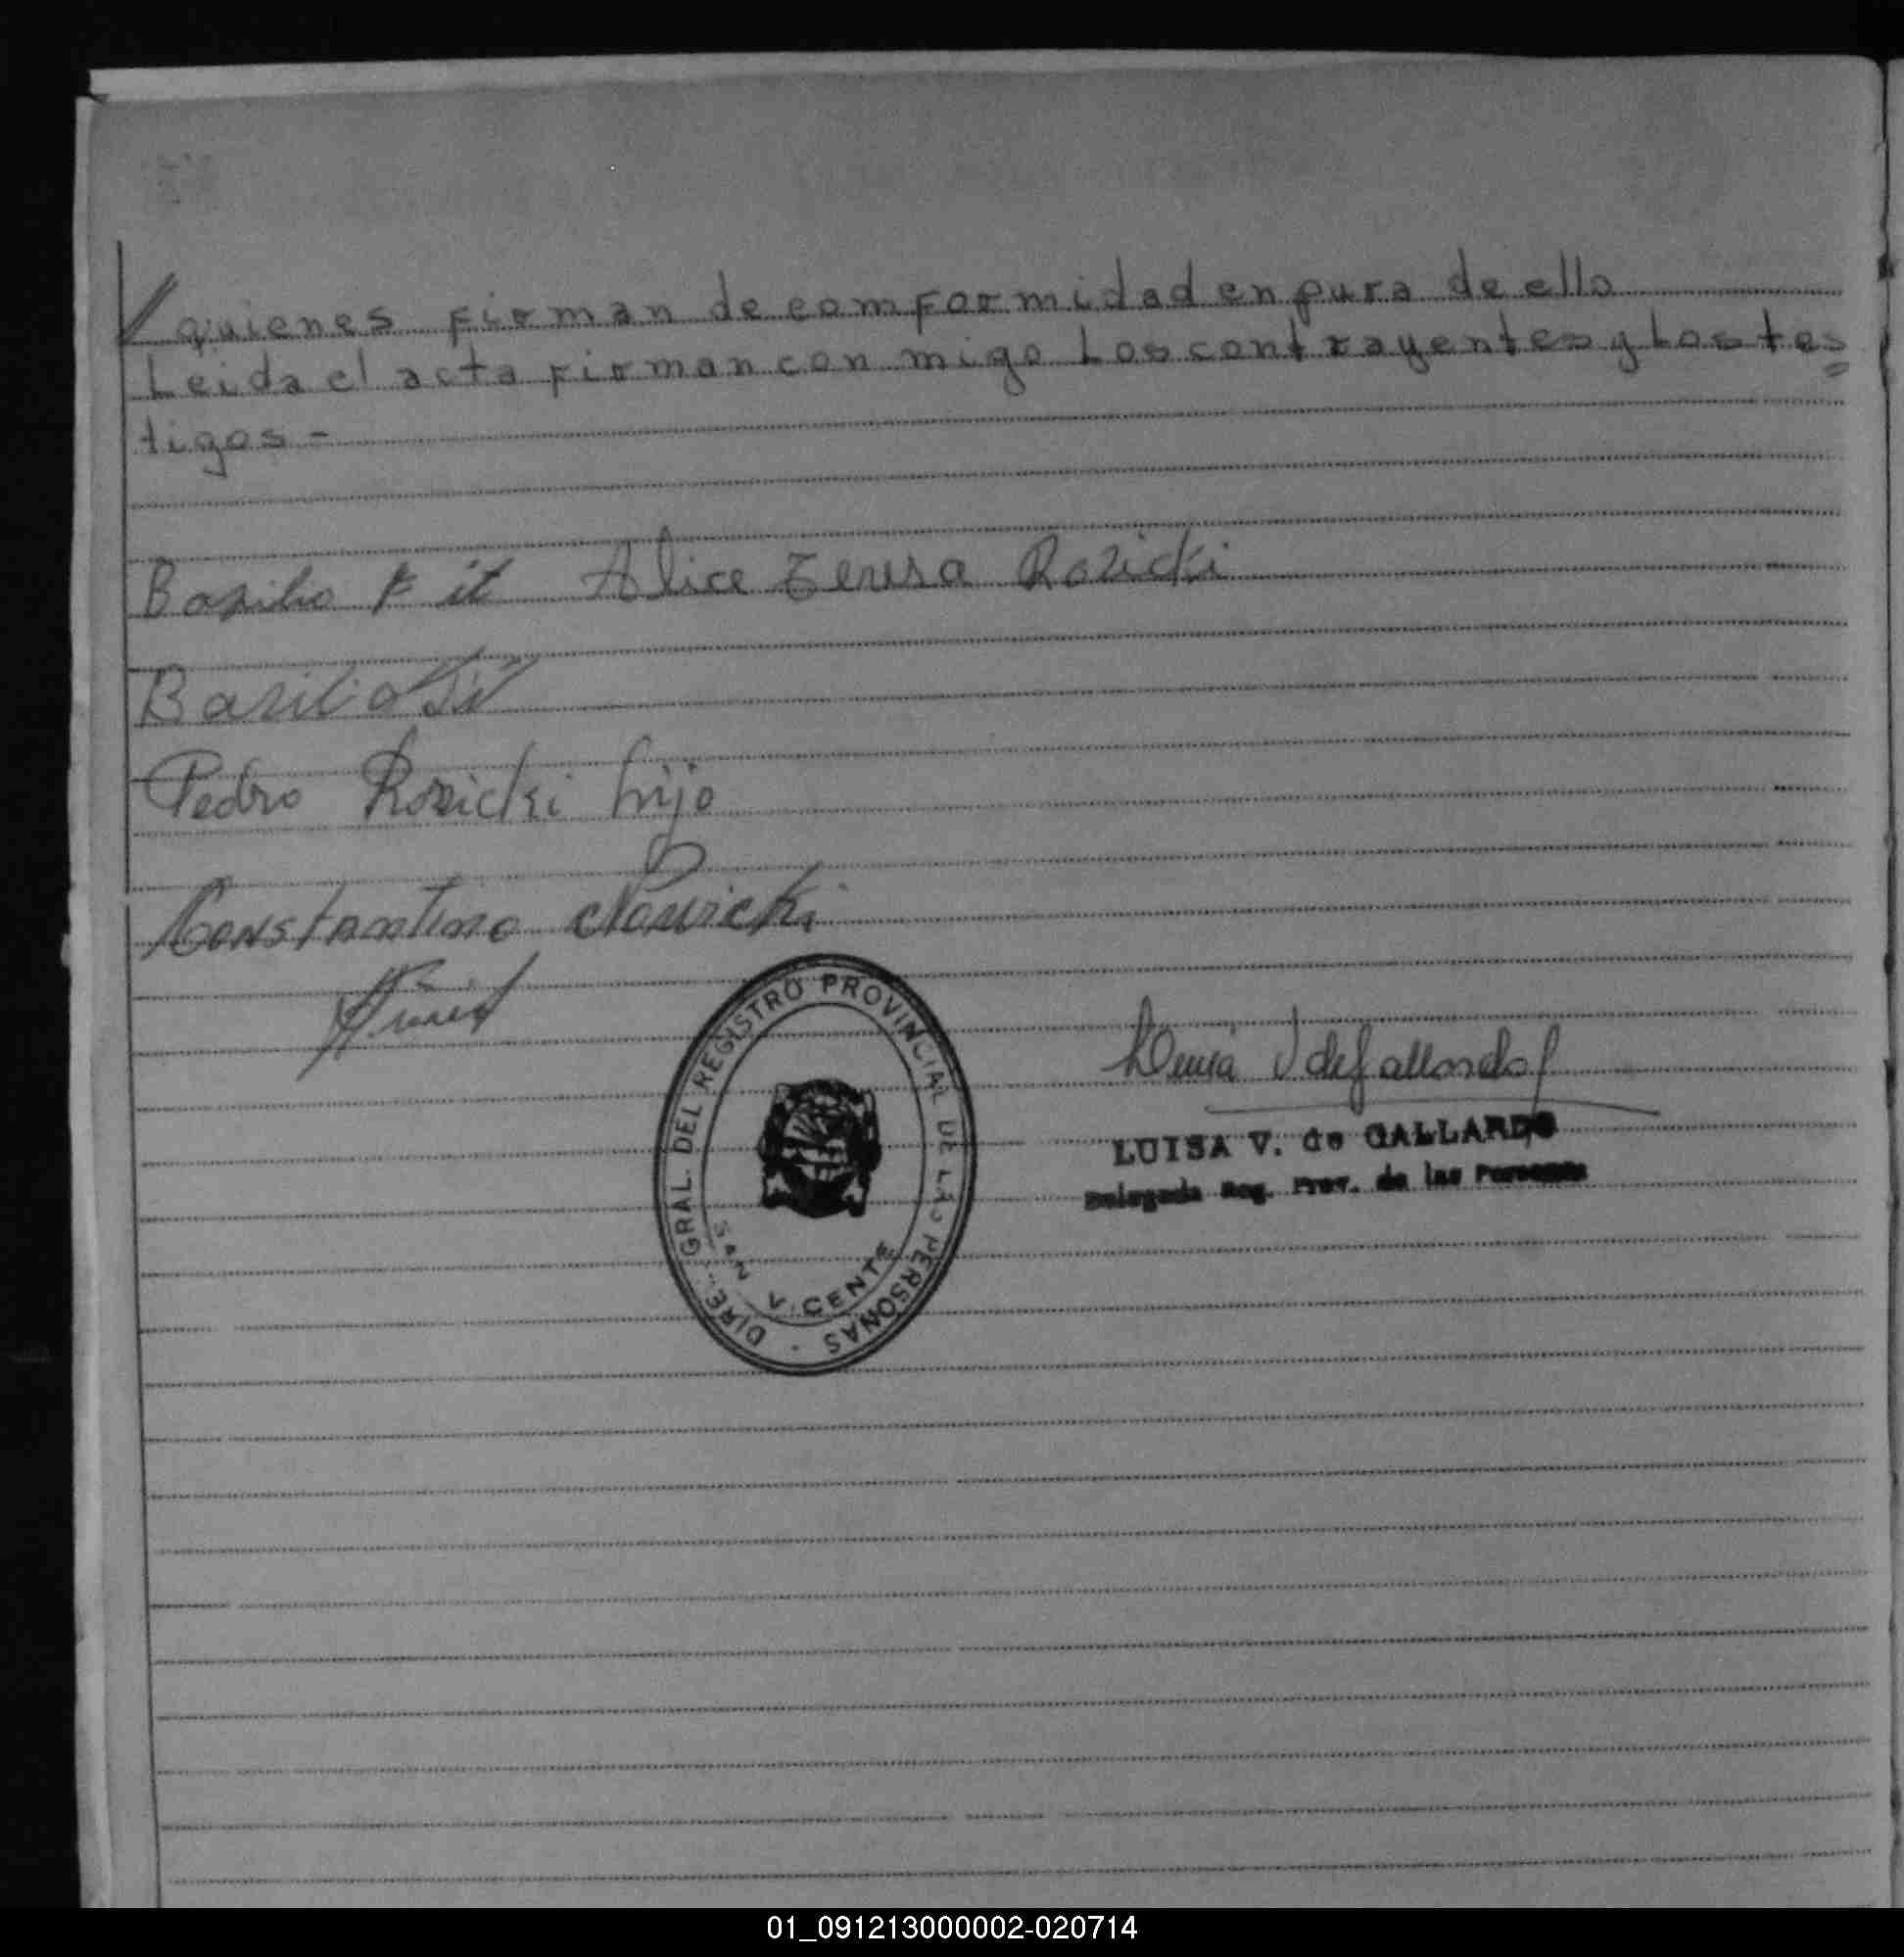 quienes firman de comformidad en pura de ello
Leida el acta firman con migo Los contrayentes y Los tes=
tigos-
Basilio Fit Alice Teresa Rozicki
Basilio
Pedro Rozicki hijo
Constantino Nowicki
DIRE. GRAL. DEL REGISTRO PROVINCIAL DE LAS PERSONAS
SAN VICENTE
Luisa V de Gallardo
LUISA V. de GALLARDO
Delegada Reg. Prov. de las Personas
01_091213000002-020714